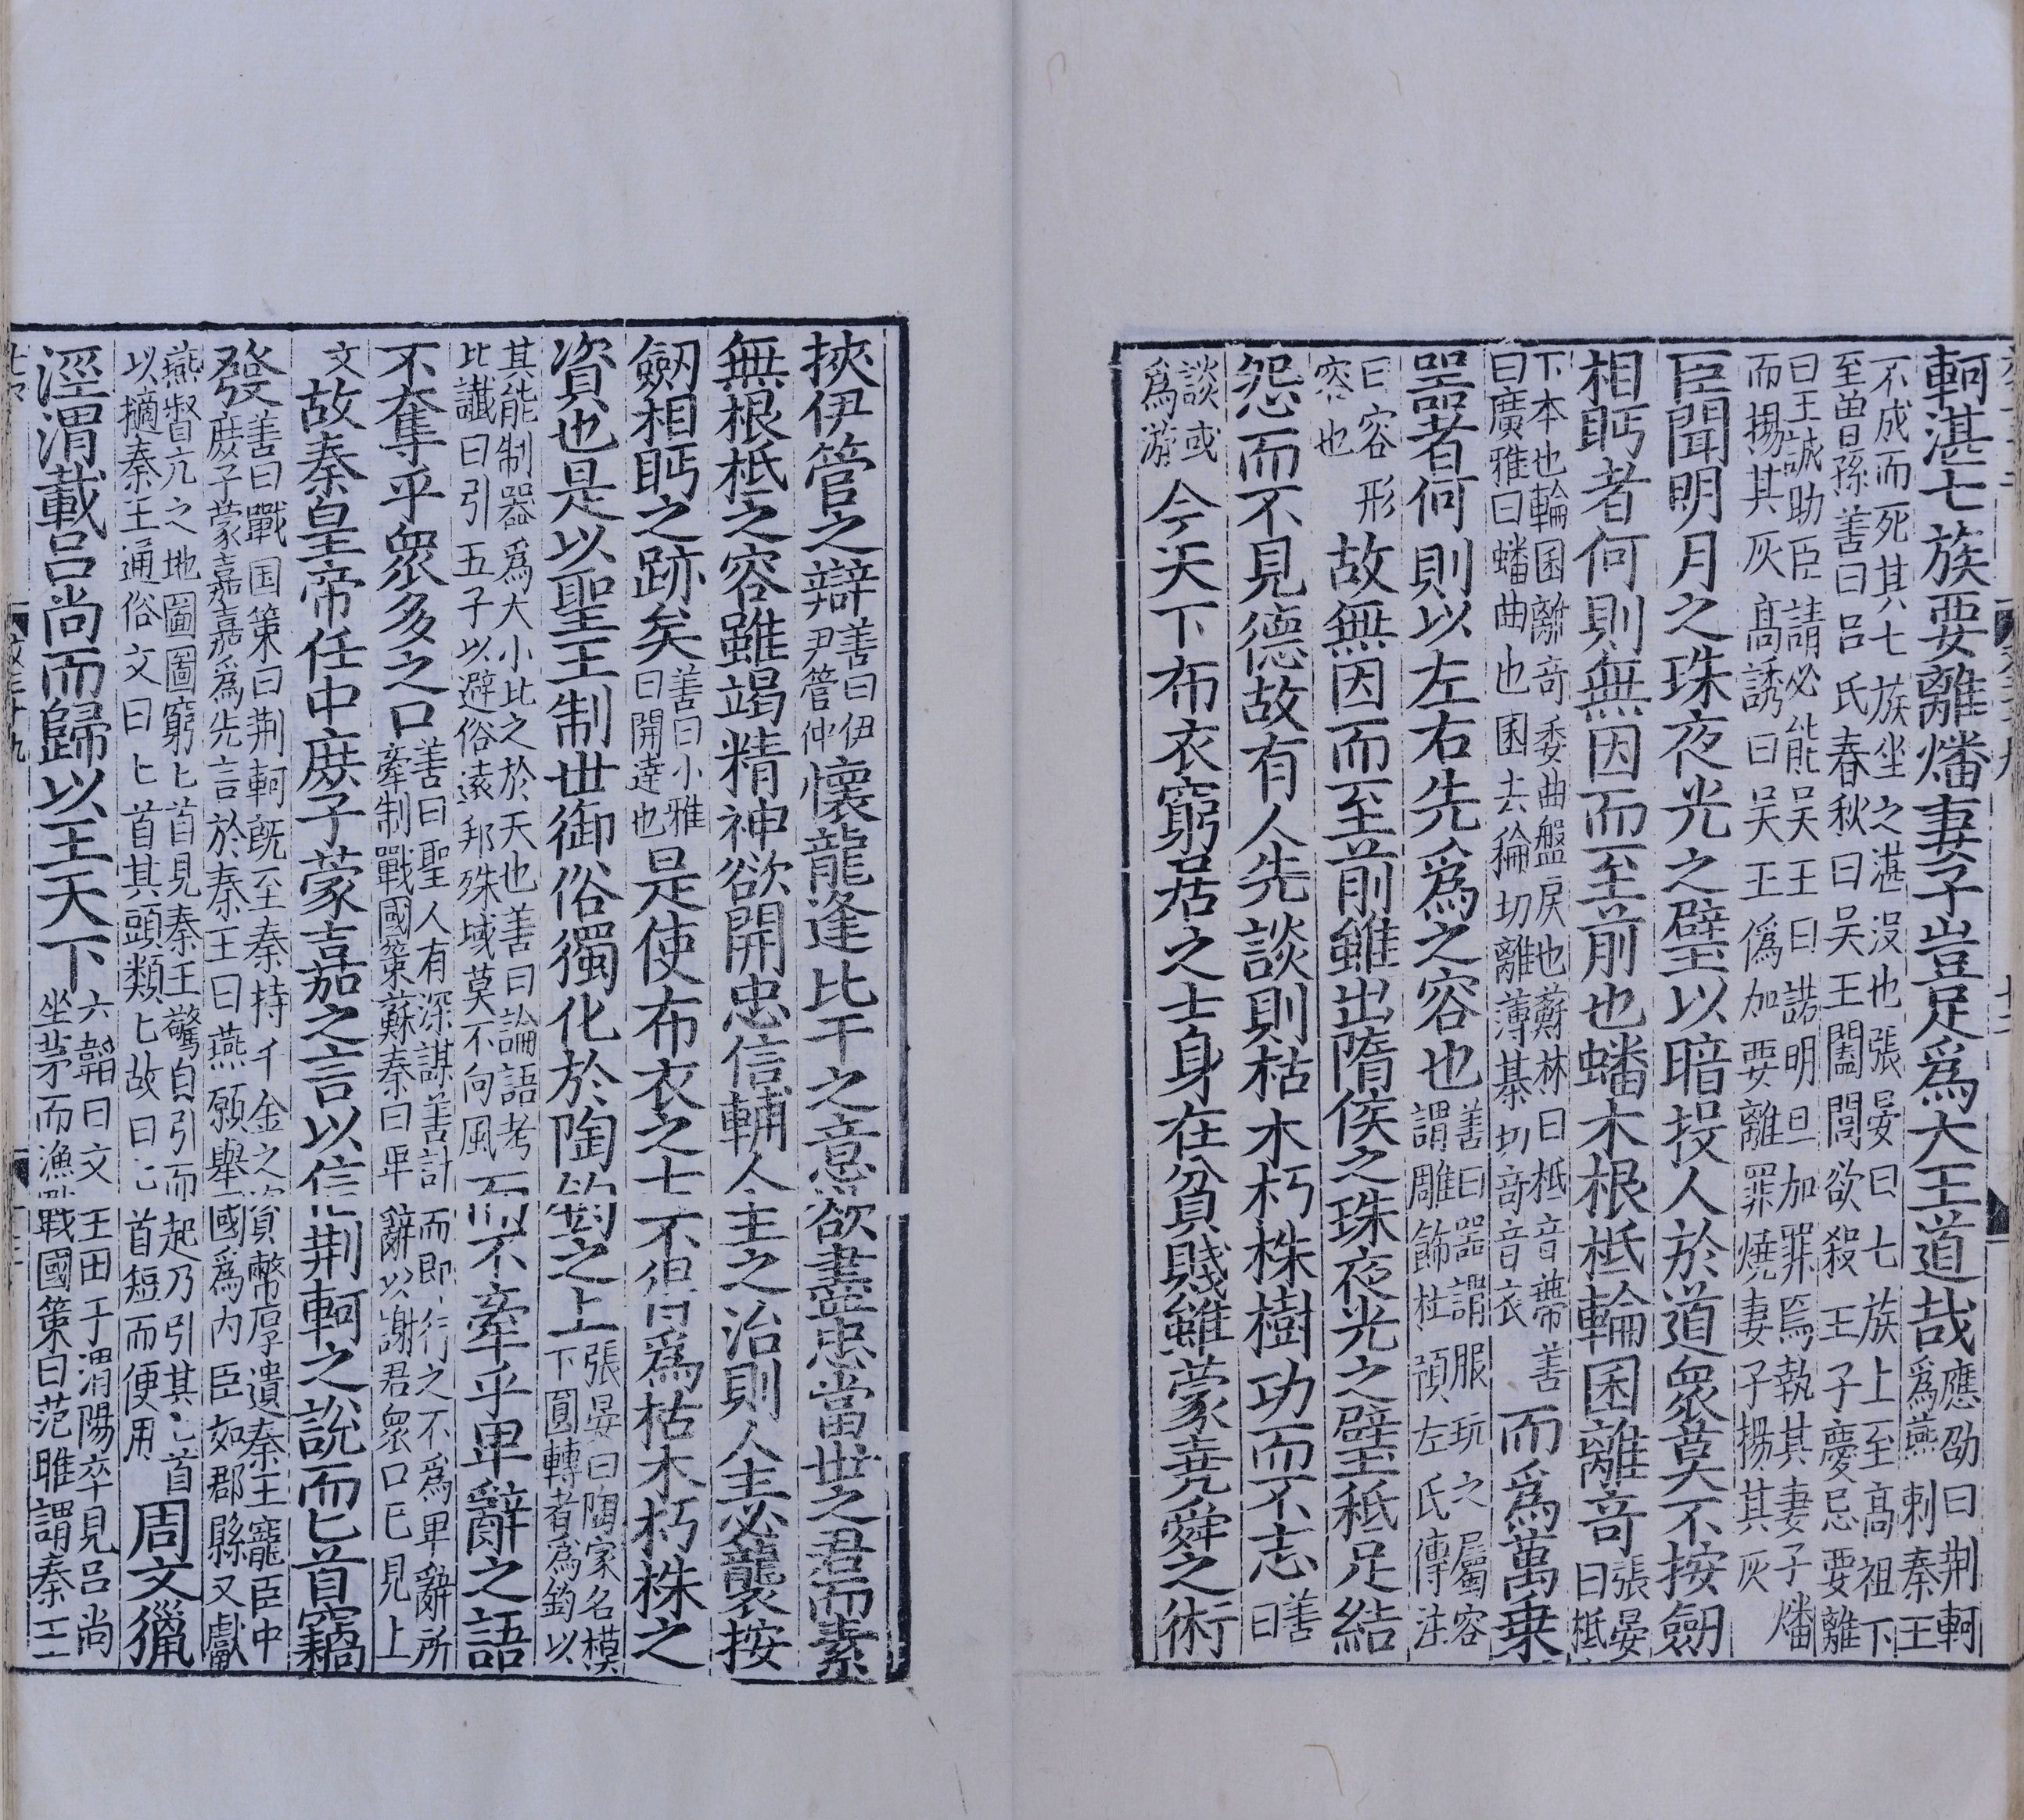 軻湛七族要離燔妻子豈足爲大王道哉應劭曰荆軻爲燕刺秦王
不成而死其七族坐之湛没也張晏曰七族上至髙祖下
至曽孫善曰吕氏春秋曰吴王闔閭欲殺王子慶忌要離
曰王誠助臣請必能吴王曰諾明旦加罪焉執其妻子燔
而揚其灰髙誘曰吴王僞加要離罪燒妻子揚其灰
臣聞明月之珠夜光之璧以暗投人於道衆莫不按劒
相眄者何則無因而至前也蟠木根柢輪囷離竒張晏曰柢
下本也輪囷離竒委曲盤戾也蘇林曰柢音蔕善
曰廣雅曰蟠曲也囷去倫切離薄棊切竒音衣
而爲萬乗
器者何則以左右先爲之容也善曰器謂服玩之屬容
謂雕飾杜預左氏傳注
曰容形
容也
故無因而至前雖出隋侯之珠夜光之璧秖足結
怨而不見德故有人先談則枯木朽株樹功而不忘善曰
談或
爲游
今天下布衣窮居之士身在貧賤雖蒙堯舜之術
挾伊管之辯善曰伊
尹管仲
懷龍逢比干之意欲盡忠當世之君而素
無根柢之容雖竭精神欲開忠信輔人主之治則人主必襲按
劒相眄之跡矣善曰小雅
曰開達也
是使布衣之士不得爲枯木朽株之
資也是以聖王制世御俗獨化於陶鈞之上張晏曰陶家名模
下圓轉者爲鈞以
其能制器爲大小比之於天也善曰論語考
比讖曰引五子以避俗逺邦殊域莫不向風
而不牽乎卑辭之語
不奪乎衆多之口善曰聖人有深謀善計而即行之不爲卑辭所
牽制戰國策蘇秦曰卑辭以謝君衆口已見上
文
故秦皇帝任中庶子蒙嘉之言以信荆軻之說而匕首竊
發善曰戰国策曰荆軻旣至秦持千金之資幣厚遺秦王寵臣中
庶子蒙嘉嘉爲先言於秦王曰燕願舉國爲内臣如郡縣又獻
燕督亢之地圖圖窮匕首見秦王驚自引而起乃引其匕首
以擿秦王通俗文曰匕首其頭類匕故曰匕首短而便用
周文獵
涇渭載吕尚而歸以王天下六韜曰文王田于渭陽卒見吕尚
坐茅而漁戰國策曰范雎謂秦王